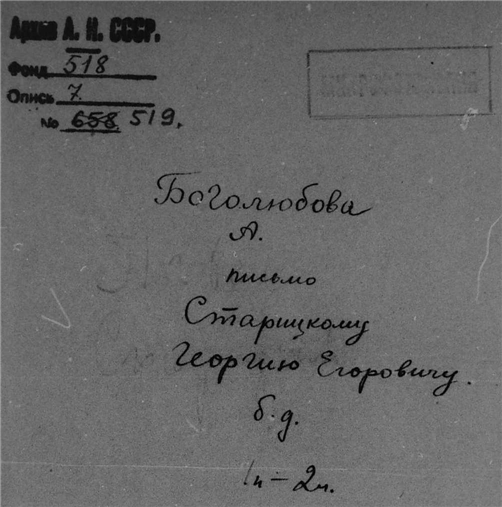 Архив А. Н. СССР.
Фонд 518
Опись 7.
№ 658 519.
МИКРОФИЛЬМИРОВАН
Боголюбова
А.
письмо
Старицкому
Георгию Егоровичу.
б. д.
1п – 2л.